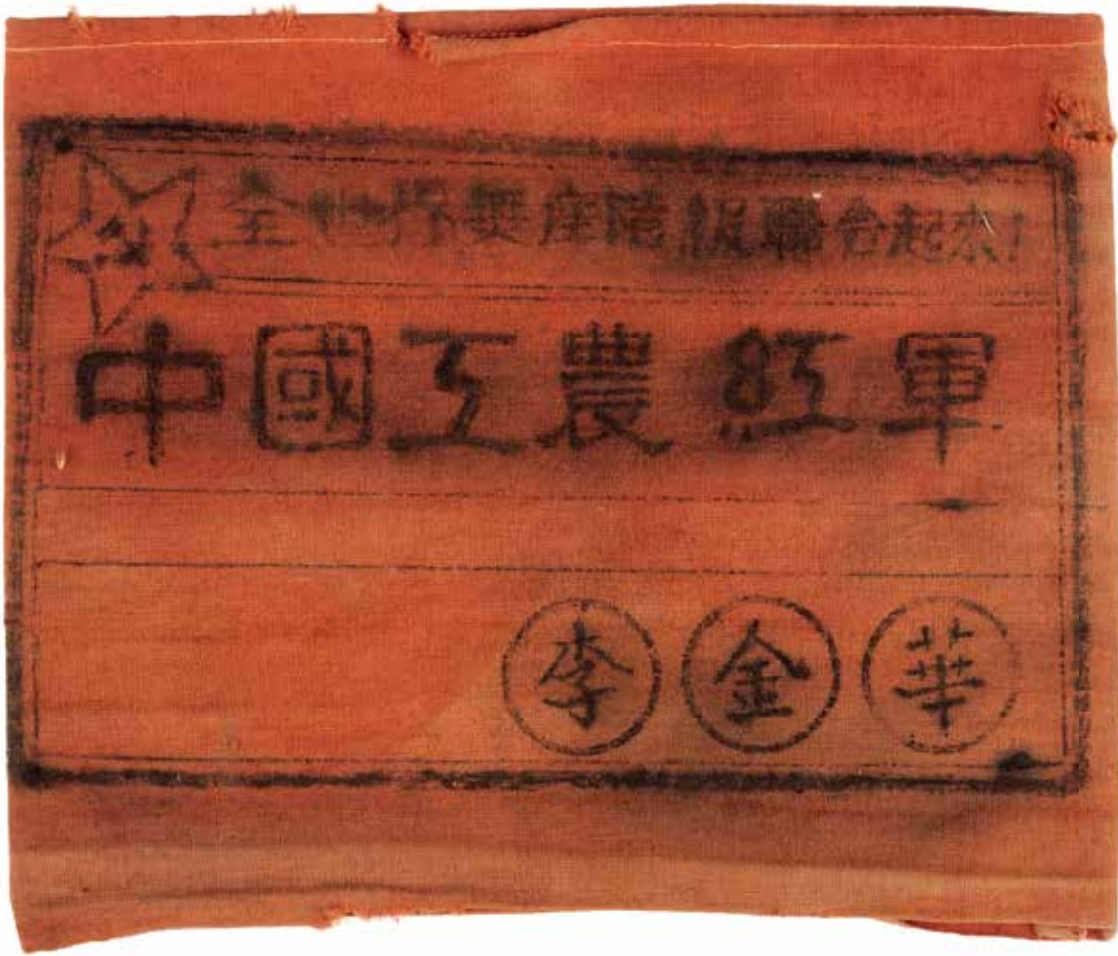 全世界無産階級聯合起來!
中國工農紅軍
李金華